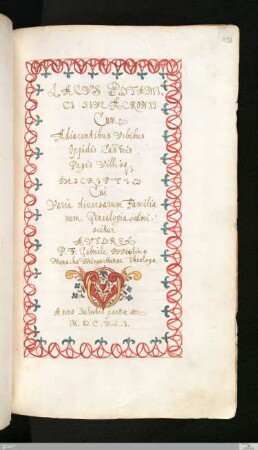 LACUS POTAMI,
CI SIVE ACRONII
Cum
Adiacentibus Urbibus
Oppidis Castris
Pagis Villisq;
DESCRIPTIO
Cui
Varia diversarum Familia
rum Genealogia admi,
scetur
AUTORE
P. F. Gabriele Bucelino
Monacho Weingartense Theologo.
Anno Salutis partae